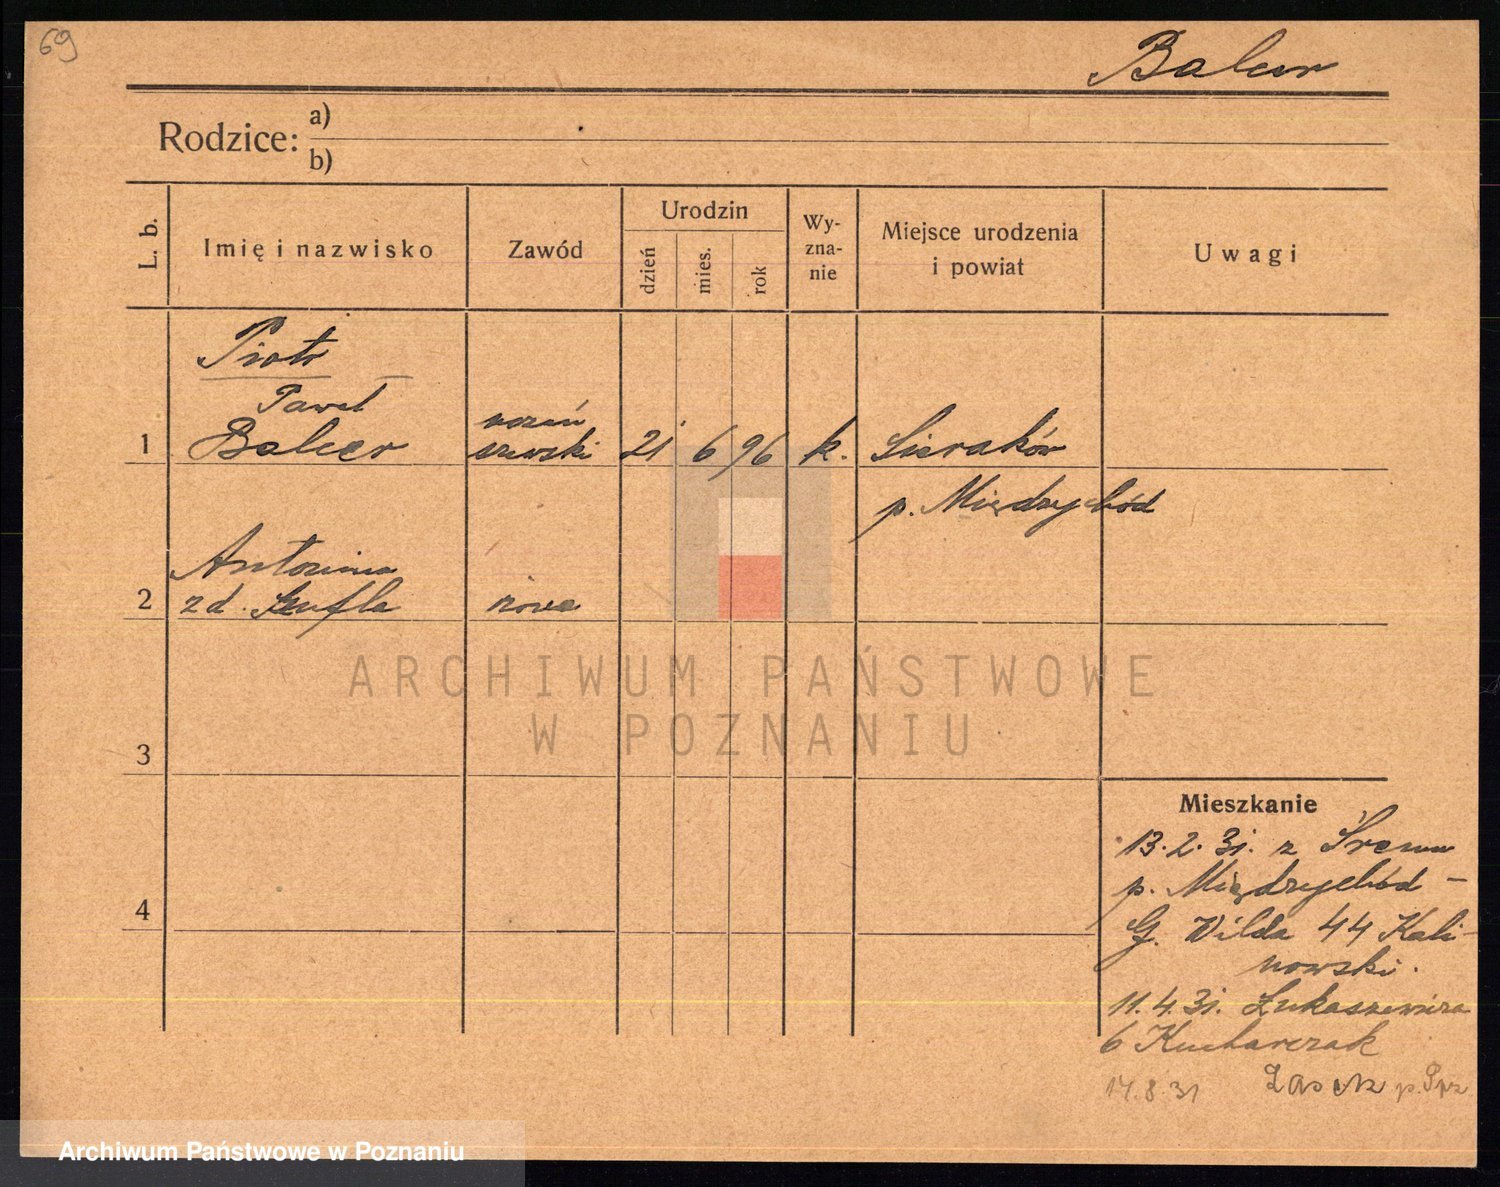 69
Balcer
Rodzice: a)
b)
L. b.
Imię i nazwisko
Zawód
Urodzin
dzień
mies.
rok
Wy-
zna-
nie
Miejsce urodzenia
i powiat
Uwagi
Piotr
Paweł
1 Balcer szewski 21 6 96 k. Sieraków
p. Międzychód
Antonina
2 zd. Szufla żona
ARCHIWUM PAŃSTWOWE
W POZNANIU
3
Mieszkanie
13.2.31. z Śremu
p. Międzychód -
4
G. Wilda 44 Kali-
nowski.
11.4.31. Łukaszewicza
6 Kucharczak
14.8.31 p.
Archiwum Państwowe w Poznaniu